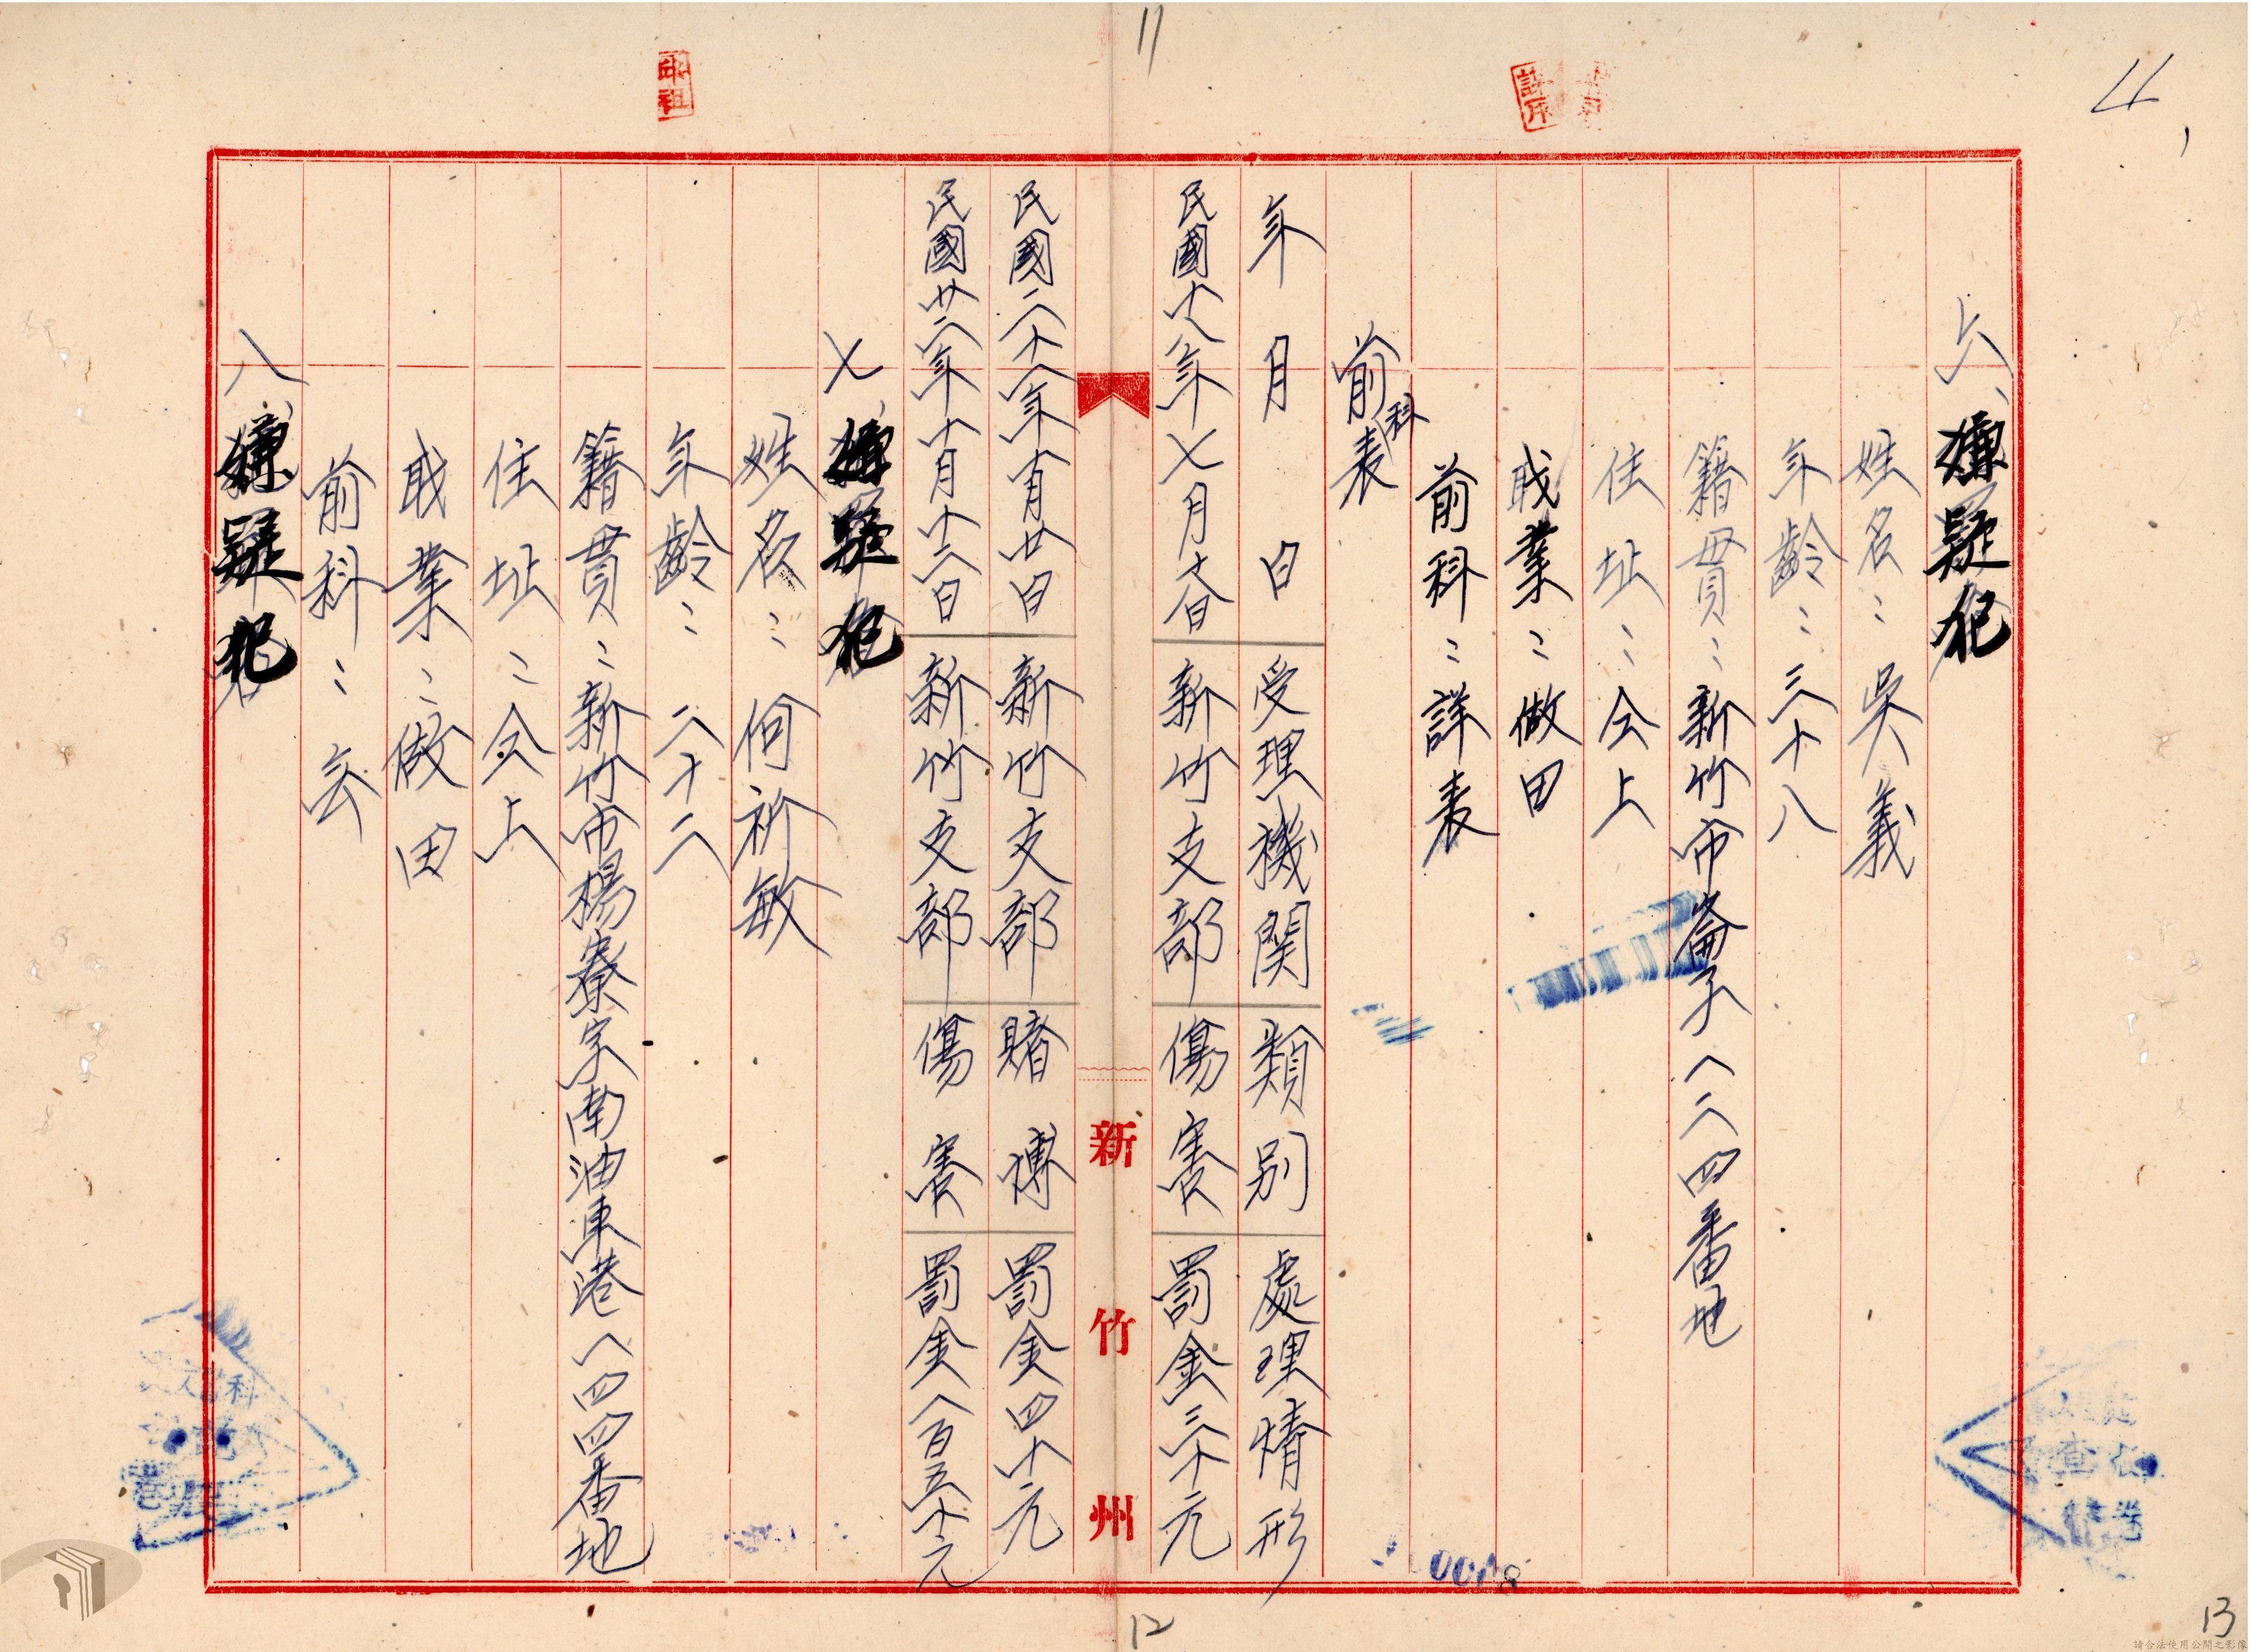 11
六、嫌疑犯
姓名：吳義
年齡：三十八
籍貫：新竹市崙子一二四番地
住址：仝上
職業：做田
前科：詳表
前科表
年月日 受理機関 類別 處理情形
民國十八年七月十八日 新竹支部 傷害 罰金三十元
新竹州
民國二十八年十一月廿日 新竹支部 賭博 罰金四十元
民國廿三年十月十二日 新竹支部 傷害 罰金一百五十元
七、嫌疑犯
姓名：何祈敏
年齡：二十二
籍貫：新竹市楊寮字南油車港一四四番地
住址：仝上
職業：做田
前科：云
八、嫌疑犯
12
13
請合法使用公開之影像